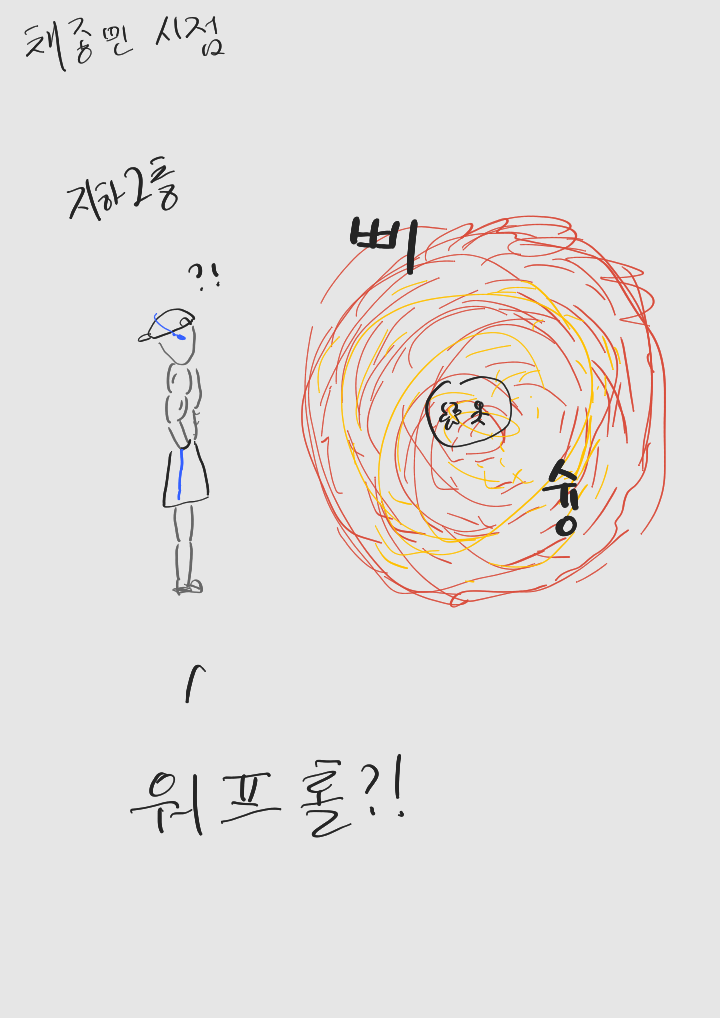 채종민 시점
지하2층
?!
삐
슝
워프홀?!